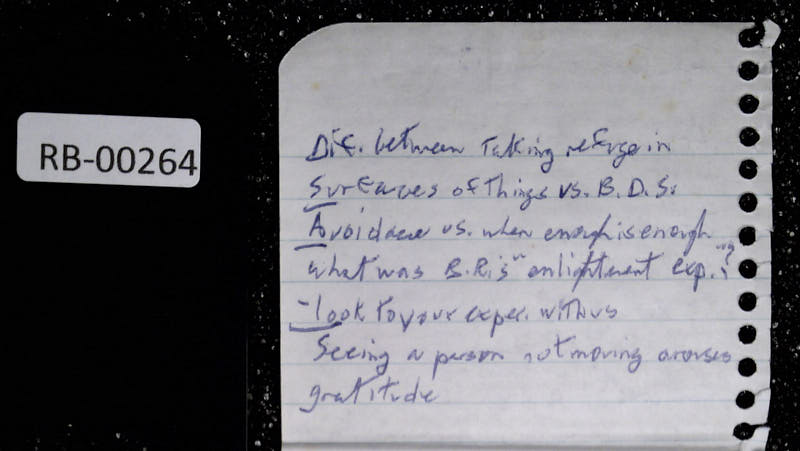 RB-00264
Dif. between taking refuge in
Surfaces of things vs. B.D.S.
Avoidance vs. when enough is enough
what was B.R.'s "enlightenment exp."?
- look to your exper. with us
Seeing a person not moving arouses
gratitude